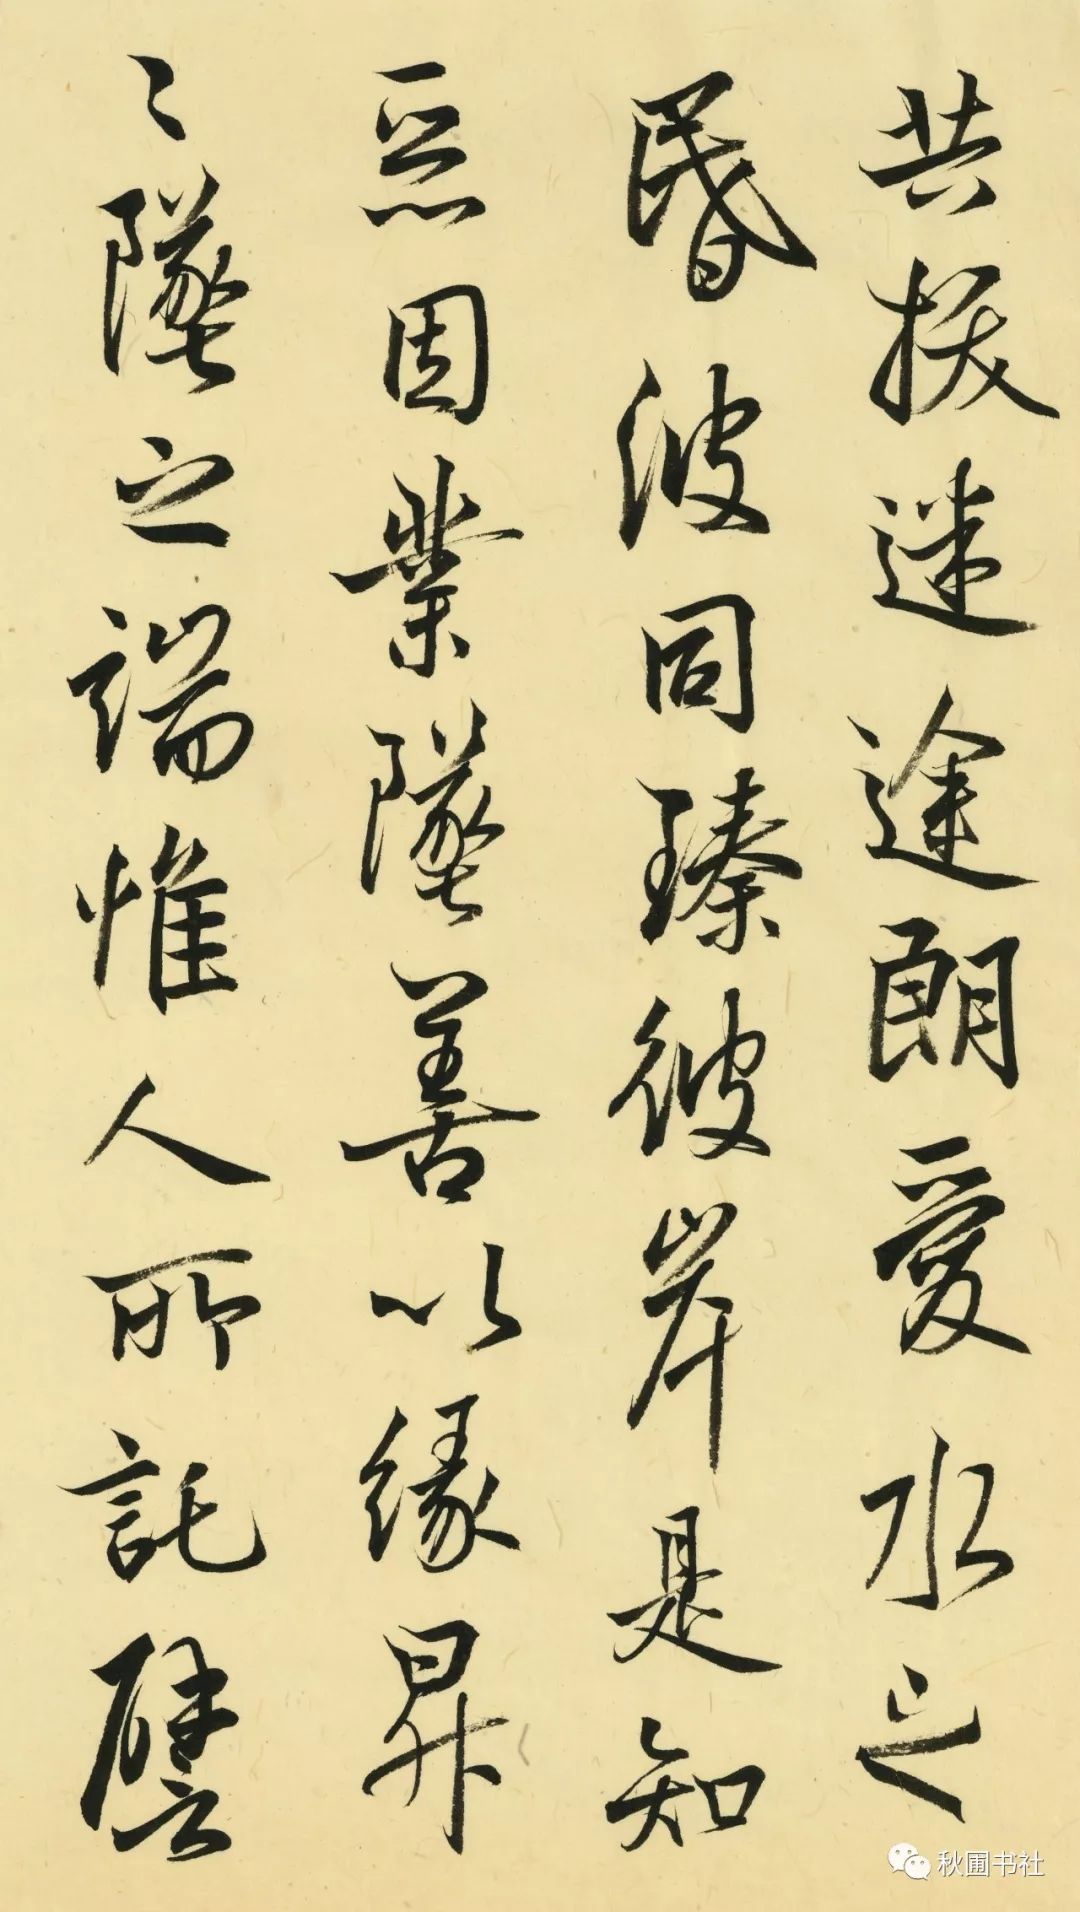 共拔迷途朗愛水之
昏波同臻彼岸是知
惡因業墜善以緣昇
〻墜之端惟人所託譬
秋圃书社